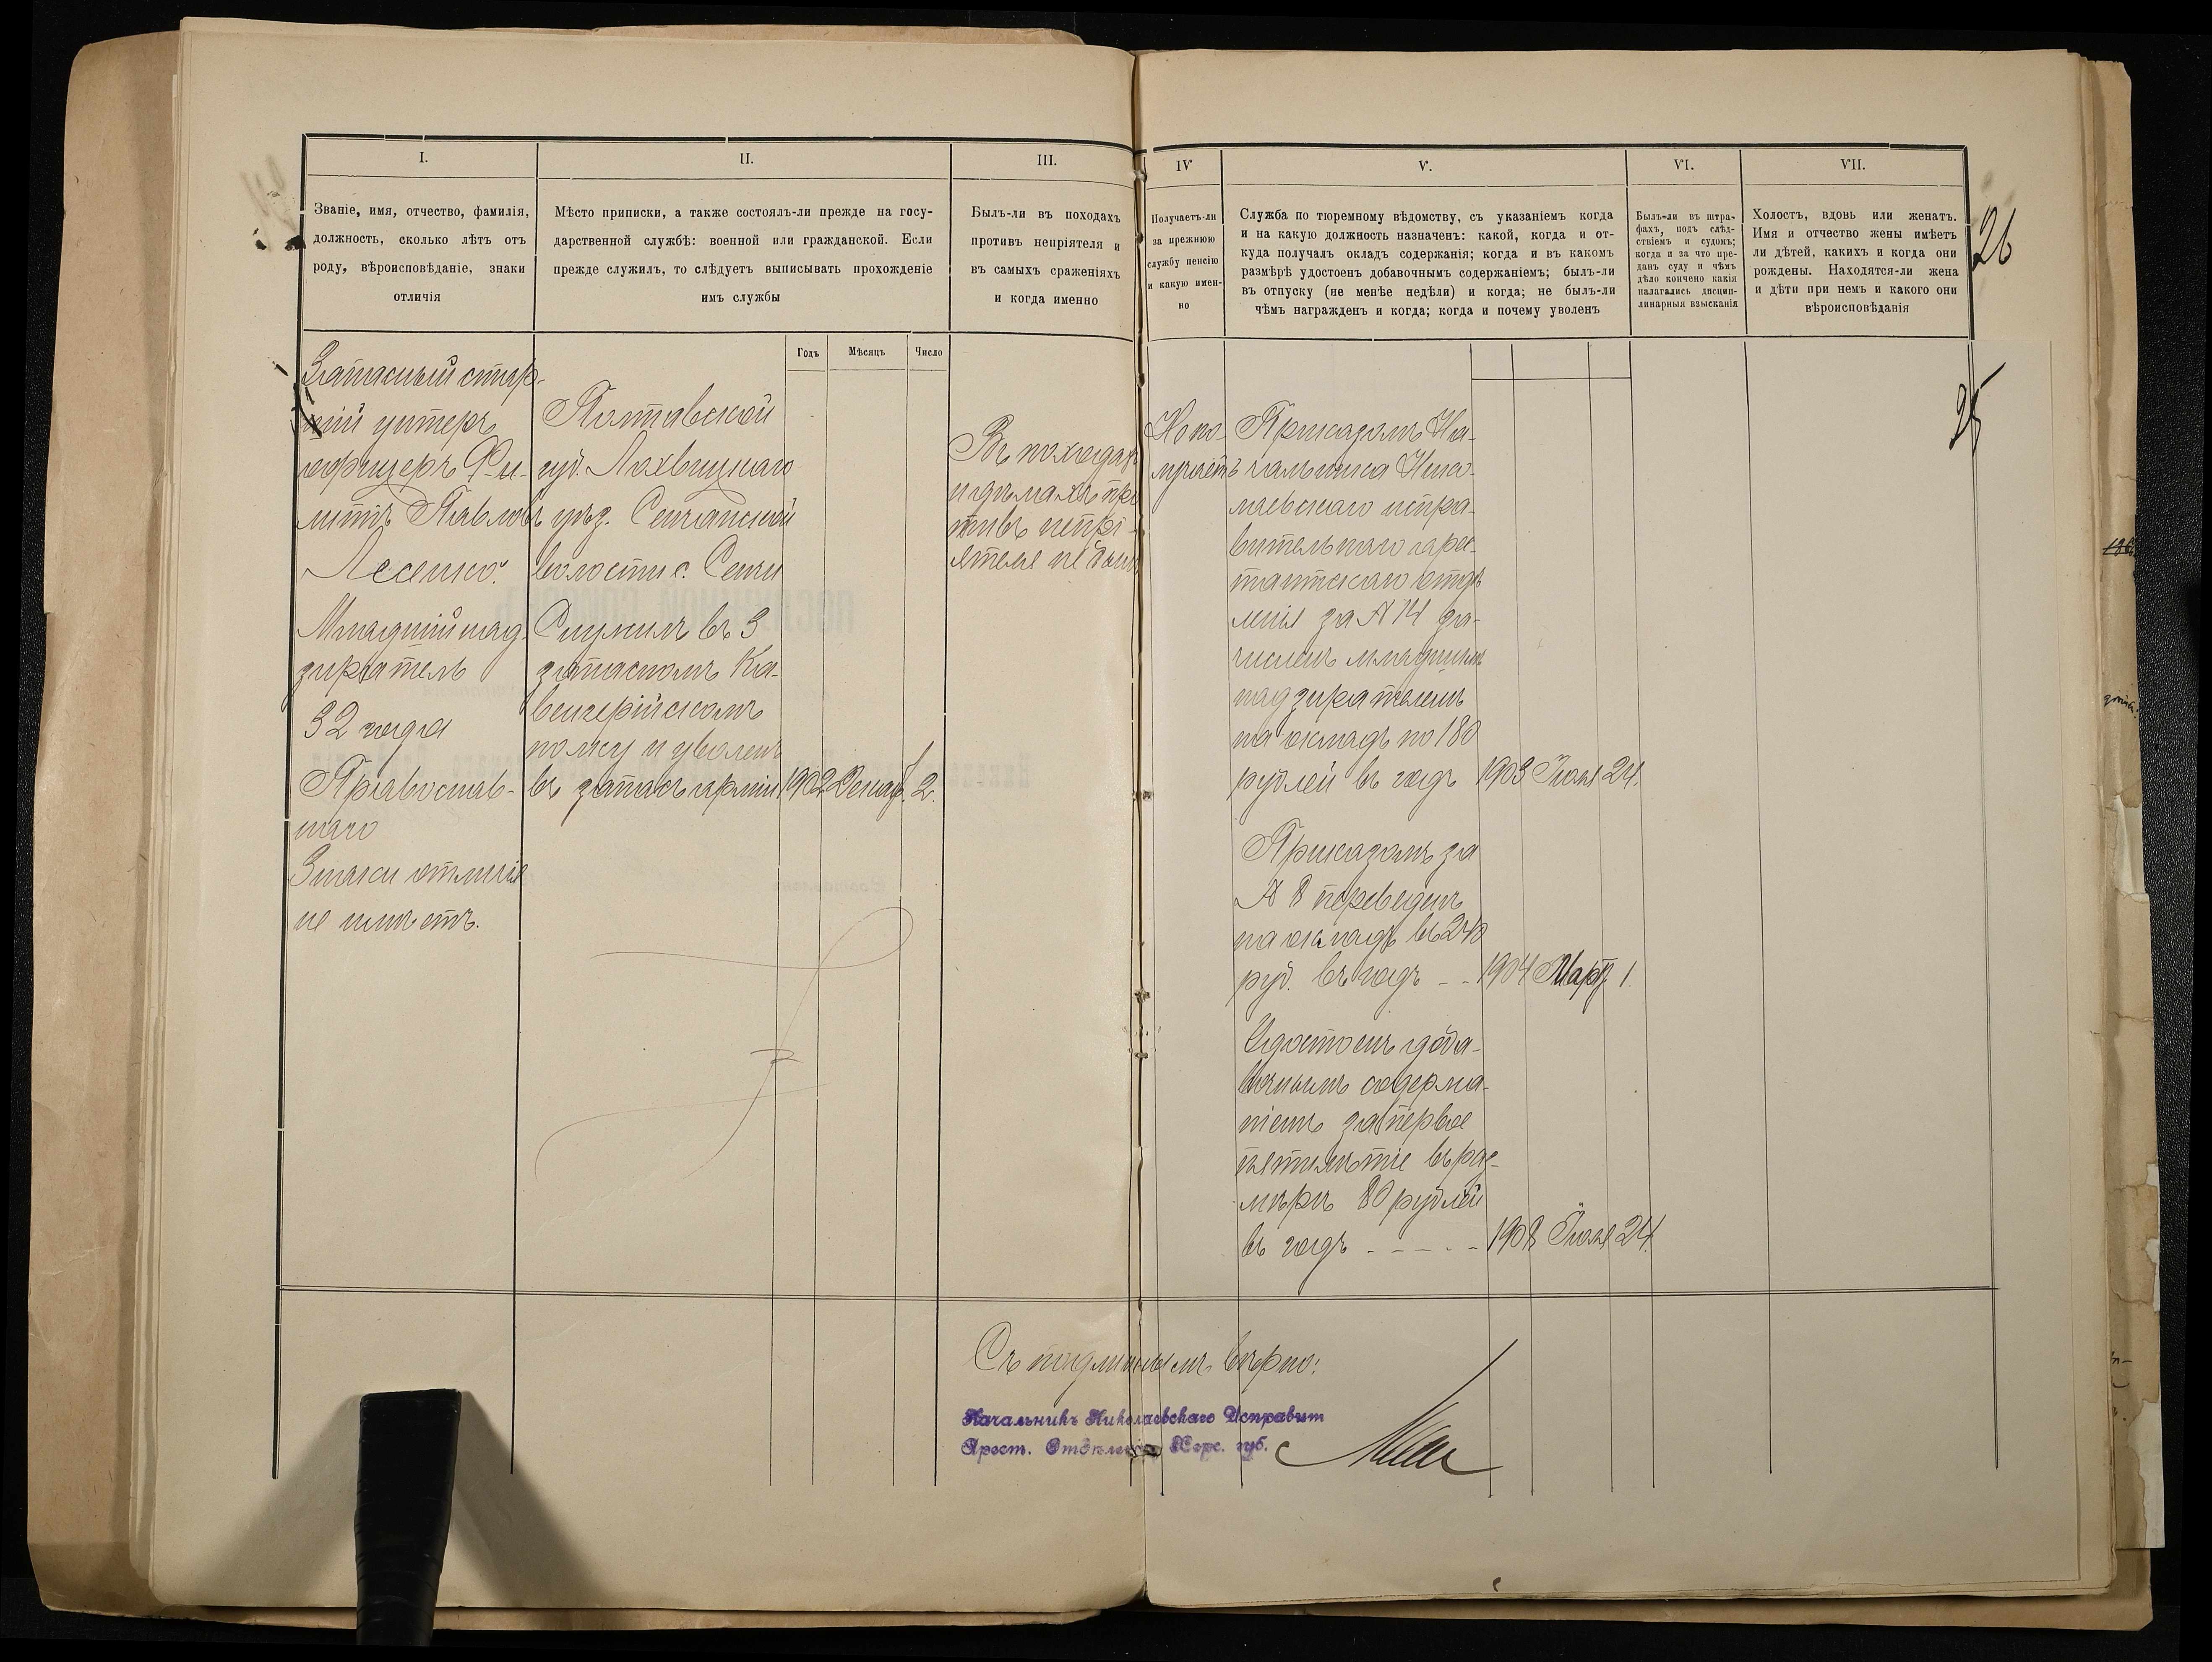 26
25
I.
Званіе, имя, отчество, фамилія,
должность, сколько лѣтъ отъ
роду, вѣроисповѣданіе, знаки
отличія
Запасный стар-
шій унтеръ
офицеръ Фи-
липпъ Павловъ
Лесенко.
Младшій над-
зиратель
32 года
Православ-
наго
Знаки отличія
не имѣетъ.
II.
Мѣсто приписки, а также состоялъ-ли прежде на госу-
дарственной службѣ: военной или гражданской. Если
прежде служилъ, то слѣдуетъ выписывать прохожденіе
имъ службы
Годъ Мѣсяцъ Число
Полтавской
губ. Лохвицкаго
уѣзд. Сенчанской
волости с. Сенчи
Служилъ въ 3
запасномъ Ка-
валерійскомъ
полку и уволенъ
въ запасъ арміи 1902 Декаб. 2.
III.
Былъ-ли въ походахъ
противъ непріятеля и
въ самыхъ сраженіяхъ
и когда именно
Въ походахъ
и дѣлахъ про
тивъ непрі-
ятеля не былъ
IV
Получаетъ-ли
за прежнюю
службу пенсію
и какую имен-
но
Не по-
лучаетъ
V.
Служба по тюремному вѣдомству, съ указаніемъ когда
и на какую должность назначенъ: какой, когда и от-
куда получалъ окладъ содержанія; когда и въ какомъ
размѣрѣ удостоенъ добавочнымъ содержаніемъ; былъ-ли
въ отпуску (не менѣе недѣли) и когда; не былъ-ли
чѣмъ награжденъ и когда; когда и почему уволенъ
Приказомъ На-
чальника Нико-
лаевскаго испра-
вительнаго арес-
тантскаго отдѣ
ленія за № 14 за-
численъ младшимъ
надзирателемъ
на окладъ по 180
рублей въ годъ 1903 Іюля 24.
Приказомъ за
№ 8 переведенъ
на окладъ въ 240
руб. въ годъ - - 1904 Март. 1.
Удостоенъ доба-
вочнымъ содержа-
ніемъ за первое
пятилѣтіе въ раз-
мѣрѣ 80 рублей
въ годъ - - - - - 1908 Іюля 24.
VI.
Былъ-ли въ штра-
фахъ, подъ слѣд-
ствіемъ и судомъ;
когда и за что пре-
данъ суду и чѣмъ
дѣло кончено какія
налагались дисцип-
линарныя взысканія
VII.
Холостъ, вдовъ или женатъ.
Имя и отчество жены имѣетъ
ли дѣтей, какихъ и когда они
рождены. Находятся-ли жена
и дѣти при немъ и какого они
вѣроисповѣданія
Съ подлиннымъ вѣрно:
Начальникъ Николаевскаго Исправит
Арест. Отдѣленія Херс. губ.